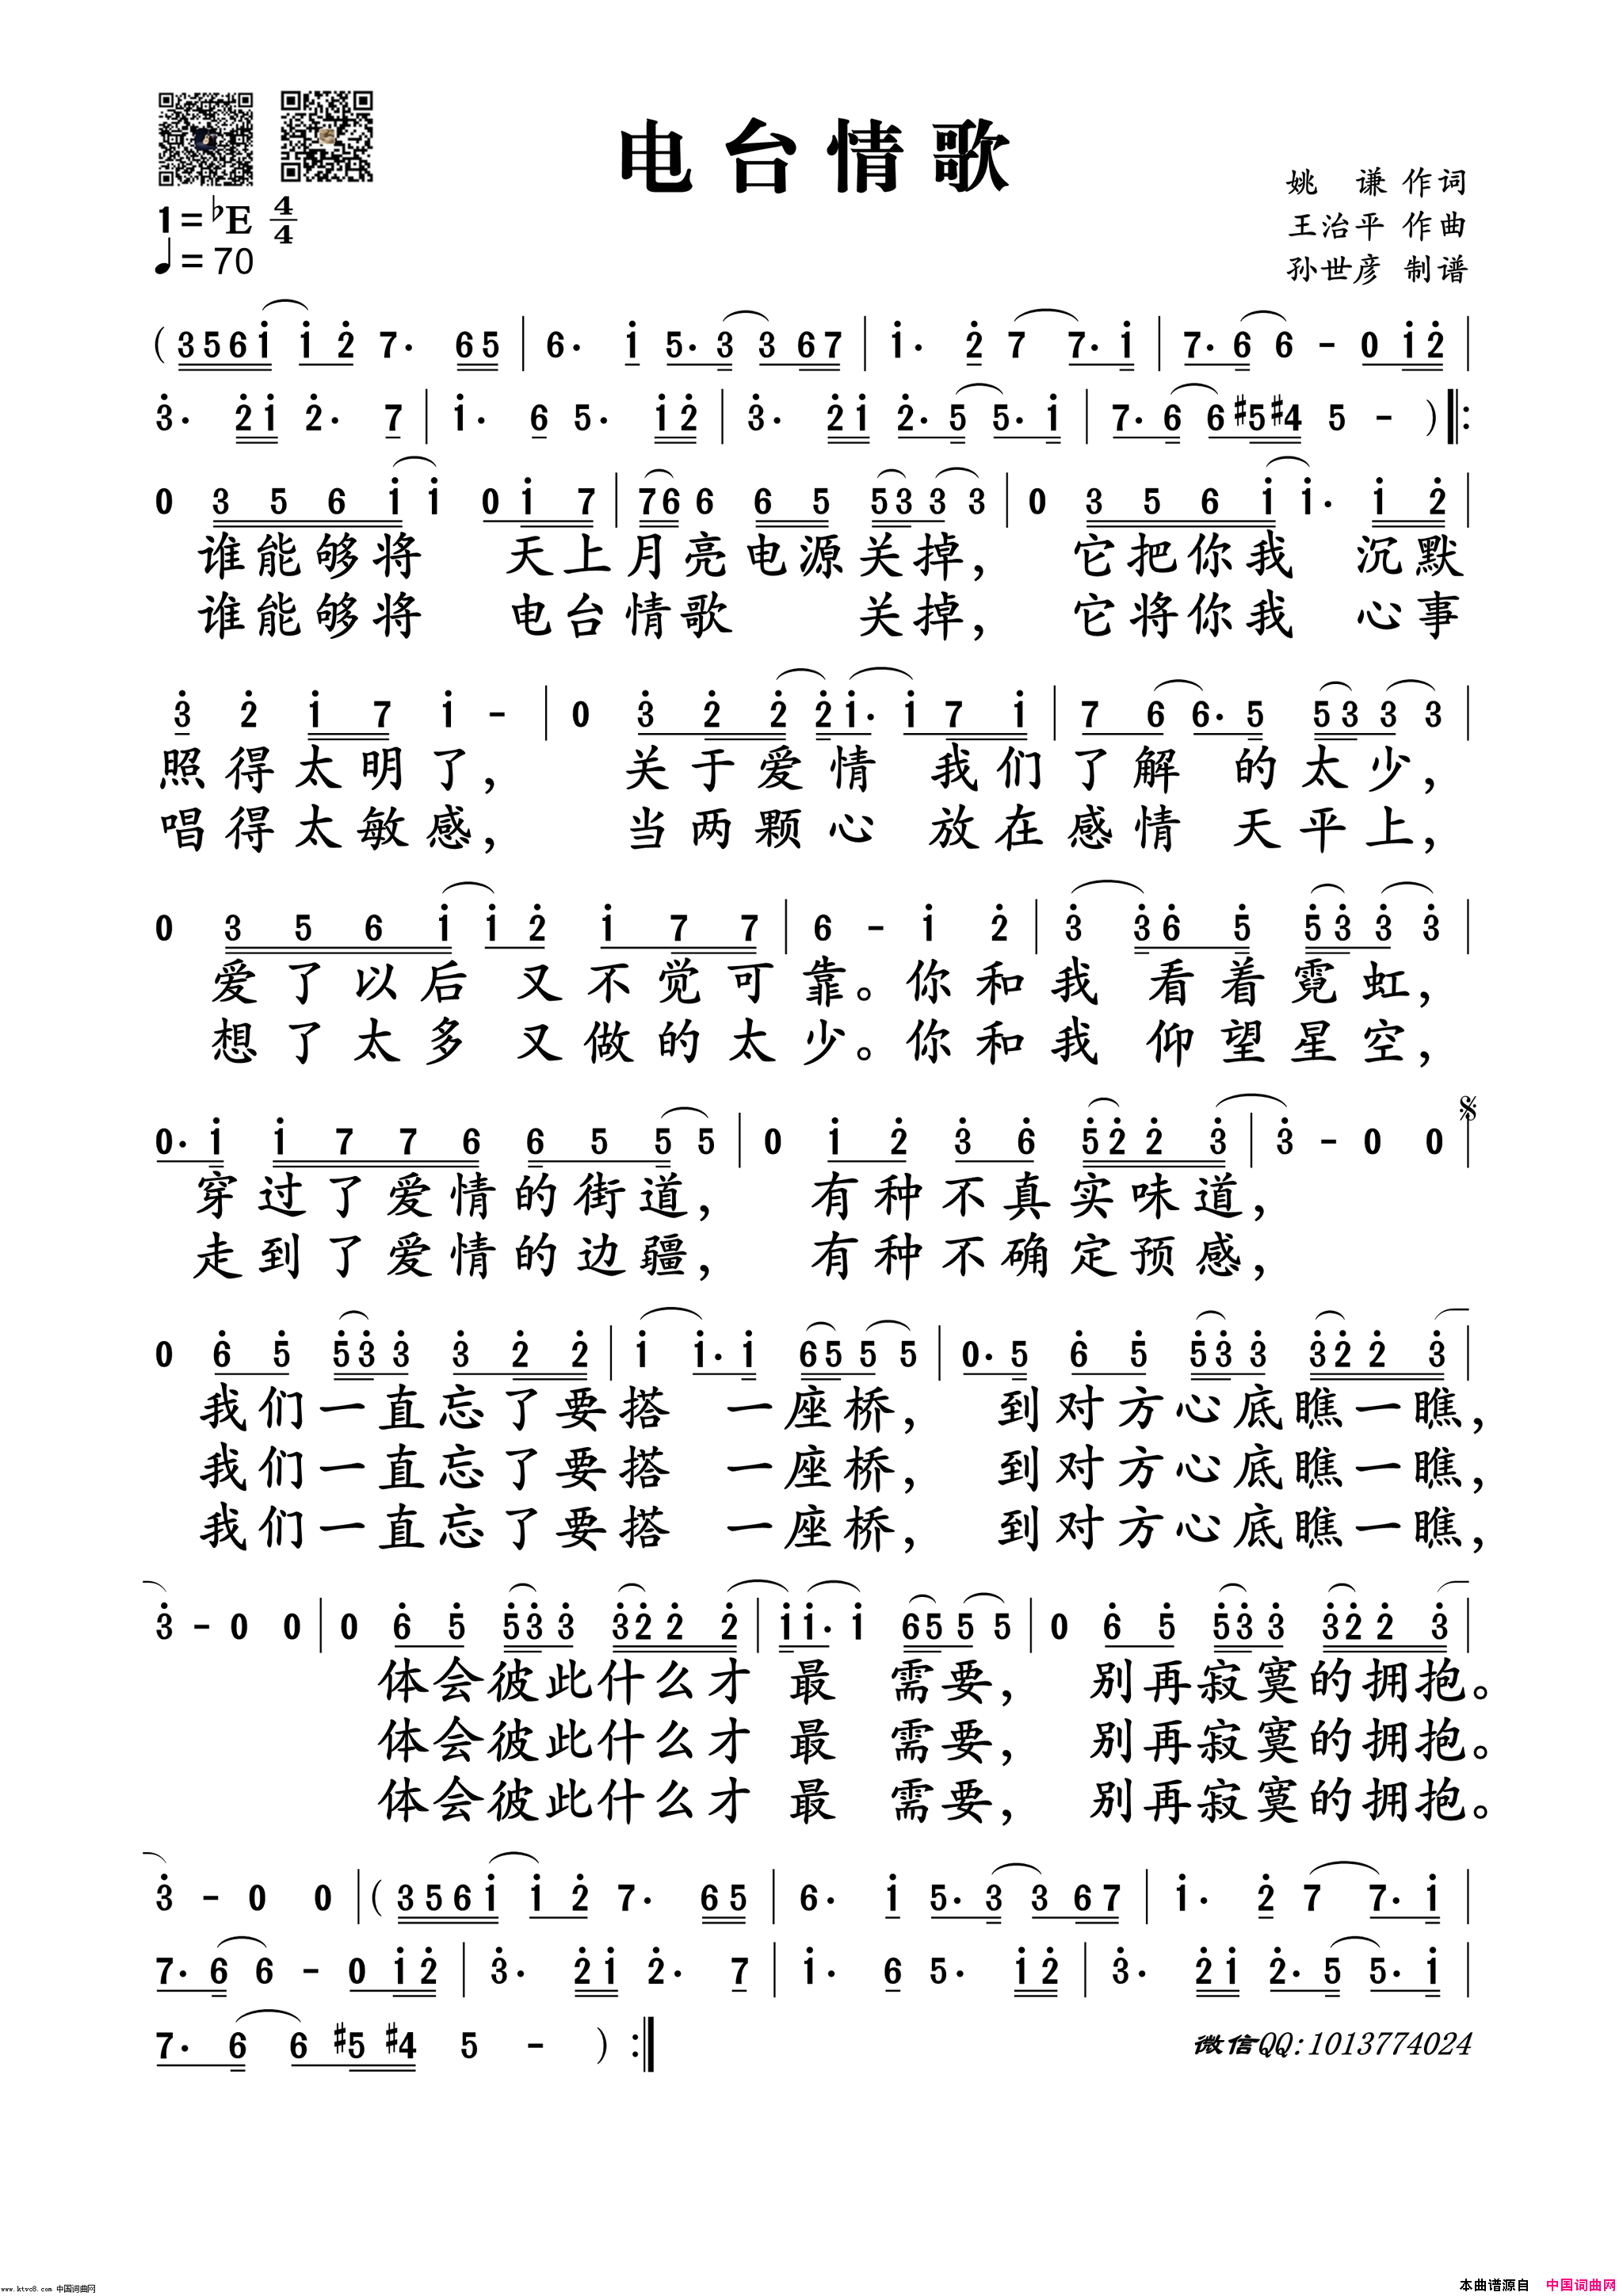 电台情歌
姚 谦 作词
1=♭E 4/4
王治平 作曲
♩=70
孙世彦 制谱
(3561 12 7· 65 | 6· 1 5·3 367 | 1· 2 7 7·1 | 7·6 6 - 012 |
3· 21 2· 7 | 1· 6 5· 12 | 3· 21 2·5 5·1 | 7·6 6#5#4 5 - ) ‖:
0 3 5 6 1 1 0 1 7 | 76 6 6 5 53 3 3 | 0 3 5 6 1 1· 1 2 |
谁能够将 天上月亮电源关掉, 它把你我 沉默
谁能够将 电台情歌 关掉, 它将你我 心事
3 2 1 7 1 - | 0 3 2 2 21· 1 7 1 | 7 6 6· 5 53 3 3 |
照得太明了, 关于爱情 我们了解 的太少,
唱得太敏感, 当两颗心 放在感情 天平上,
0 3 5 6 1 1 2 1 7 7 | 6 - 1 2 | 3 36 5 53 3 3 |
爱了以后 又不觉可靠。你和我 看着霓虹,
想了太多 又做的太少。你和我 仰望星空,
0· 1 1 7 7 6 6 5 5 5 | 0 1 2 3 6 52 2 3 | 3 - 0 0 |
穿过了爱情的街道, 有种不真实味道,
走到了爱情的边疆, 有种不确定预感,
0 6 5 53 3 3 2 2 | 1 1· 1 65 5 5 | 0· 5 6 5 53 3 32 2 3 |
我们一直忘了要搭 一座桥, 到对方心底瞧一瞧,
我们一直忘了要搭 一座桥, 到对方心底瞧一瞧,
我们一直忘了要搭 一座桥, 到对方心底瞧一瞧,
3 - 0 0 | 0 6 5 53 3 32 2 2 | 11· 1 65 5 5 | 0 6 5 53 3 32 2 3 |
体会彼此什么才 最 需要, 别再寂寞的拥抱。
体会彼此什么才 最 需要, 别再寂寞的拥抱。
体会彼此什么才 最 需要, 别再寂寞的拥抱。
3 - 0 0 | (3561 12 7· 65 | 6· 1 5·3 367 | 1· 2 7 7·1 |
7·6 6 - 012 | 3· 21 2· 7 | 1· 6 5· 12 | 3· 21 2·5 5·1 |
7·6 6#5#4 5 - ) :‖
微信QQ:1013774024
www.ktvc8.com 中国词曲网
本曲谱源自 中国词曲网